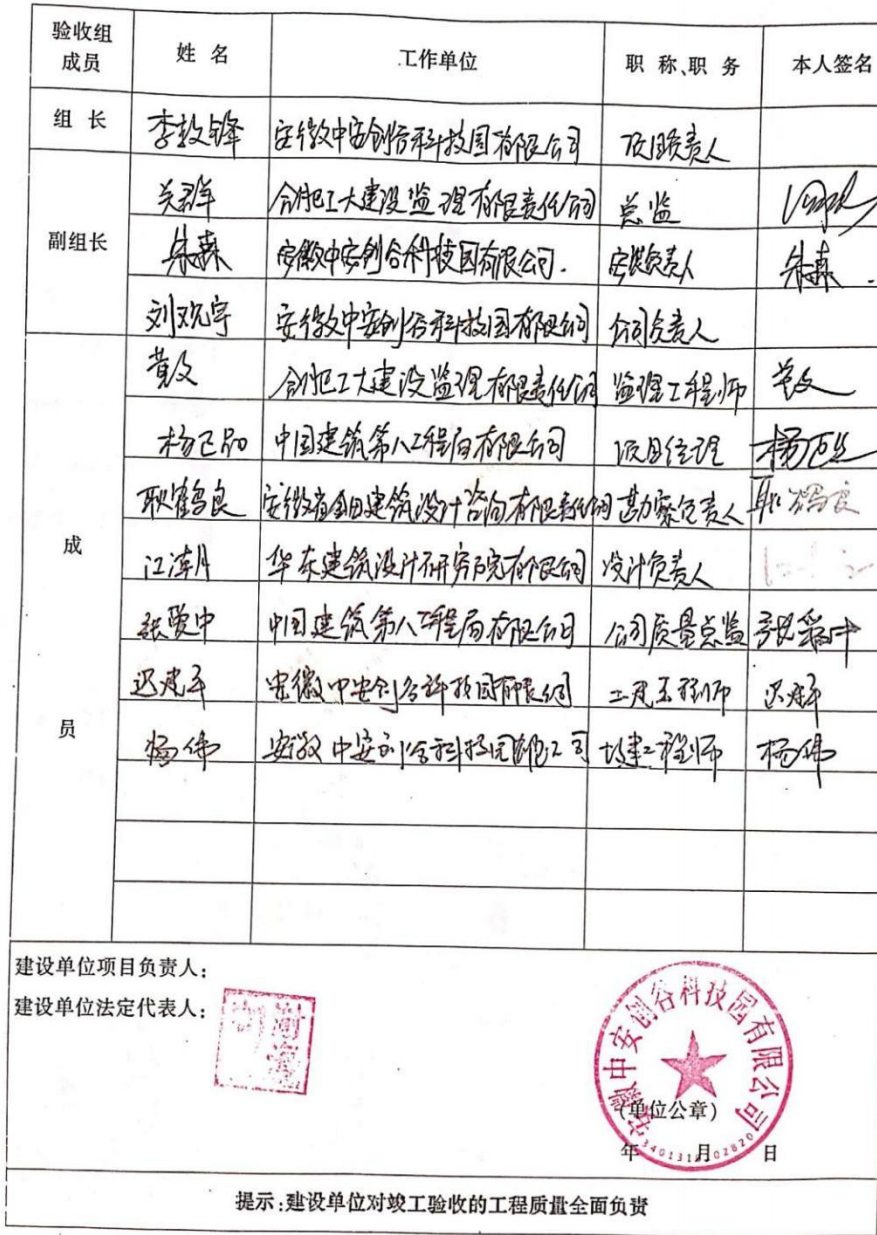 验收组成员 姓 名 工作单位 职 称、职 务 本人签名
组 长 李敖锋 安徽中安创谷科技园有限公司 项目负责人
副组长
关群 合肥工大建设监理有限责任公司 总监
朱森 安徽中安创谷科技园有限公司. 安装负责人 朱森
刘欢宇 安徽中安创谷科技园有限公司 公司负责人
成 员
黄及 合肥工大建设监理有限责任公司 监理工程师 黄及
杨 中国建筑第八工程局有限公司 项目经理 杨
耿鹤良 安徽省金田建筑设计咨询有限责任公司 勘察负责人 耿鹤良
江涛 华东建筑设计研究院有限公司 设计负责人
张爱中 中国建筑第八工程局有限公司 公司质量总监
迟建平 安徽中安创谷科技园有限公司 土建工程师 迟建平
杨伟 安徽中安创谷科技园有限公司 土建工程师 杨伟
建设单位项目负责人:
建设单位法定代表人:
安徽中安创谷科技园有限公司
(单位公章)
年 月 日
提示:建设单位对竣工验收的工程质量全面负责